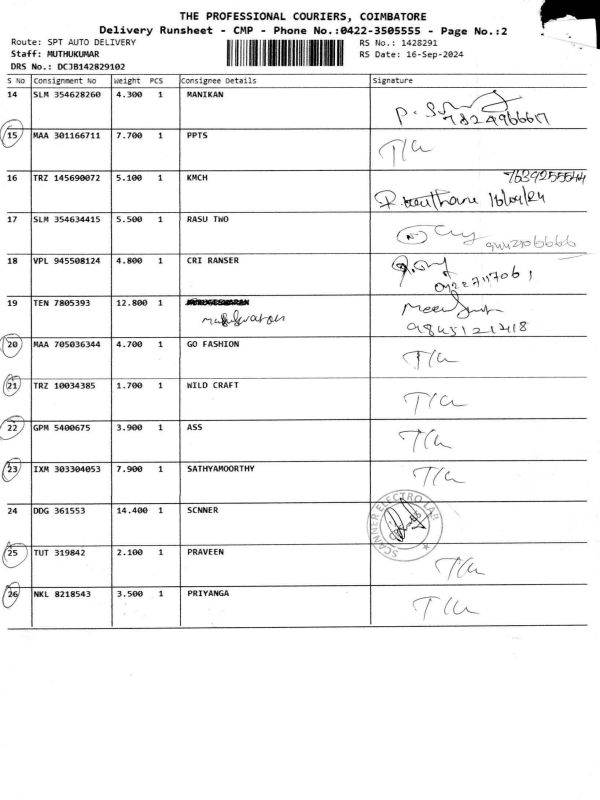 THE PROFESSIONAL COURIERS, COIMBATORE
Delivery Runsheet - CMP - Phone No.:0422-3505555 - Page No.:2
Route: SPT AUTO DELIVERY RS No.: 1428291
Staff: MUTHUKUMAR RS Date: 16-Sep-2024
DRS No.: DCJB142829102
S No Consignment No Weight PCS Consignee Details Signature
14 SLM 354628260 4.300 1 MANIKAN
15 MAA 301166711 7.700 1 PPTS
16 TRZ 145690072 5.100 1 KMCH
17 SLM 354634415 5.500 1 RASU TWO
18 VPL 945508124 4.800 1 CRI RANSER
19 TEN 7805393 12.800 1
9845121418
20 MAA 705036344 4.700 1 GO FASHION
21 TRZ 10034385 1.700 1 WILD CRAFT
22 GPM 5400675 3.900 1 ASS
23 IXM 303304053 7.900 1 SATHYAMOORTHY
24 DDG 361553 14.400 1 SCNNER
SCANNER ELECTRO LAB
25 TUT 319842 2.100 1 PRAVEEN
26 NKL 8218543 3.500 1 PRIYANGA